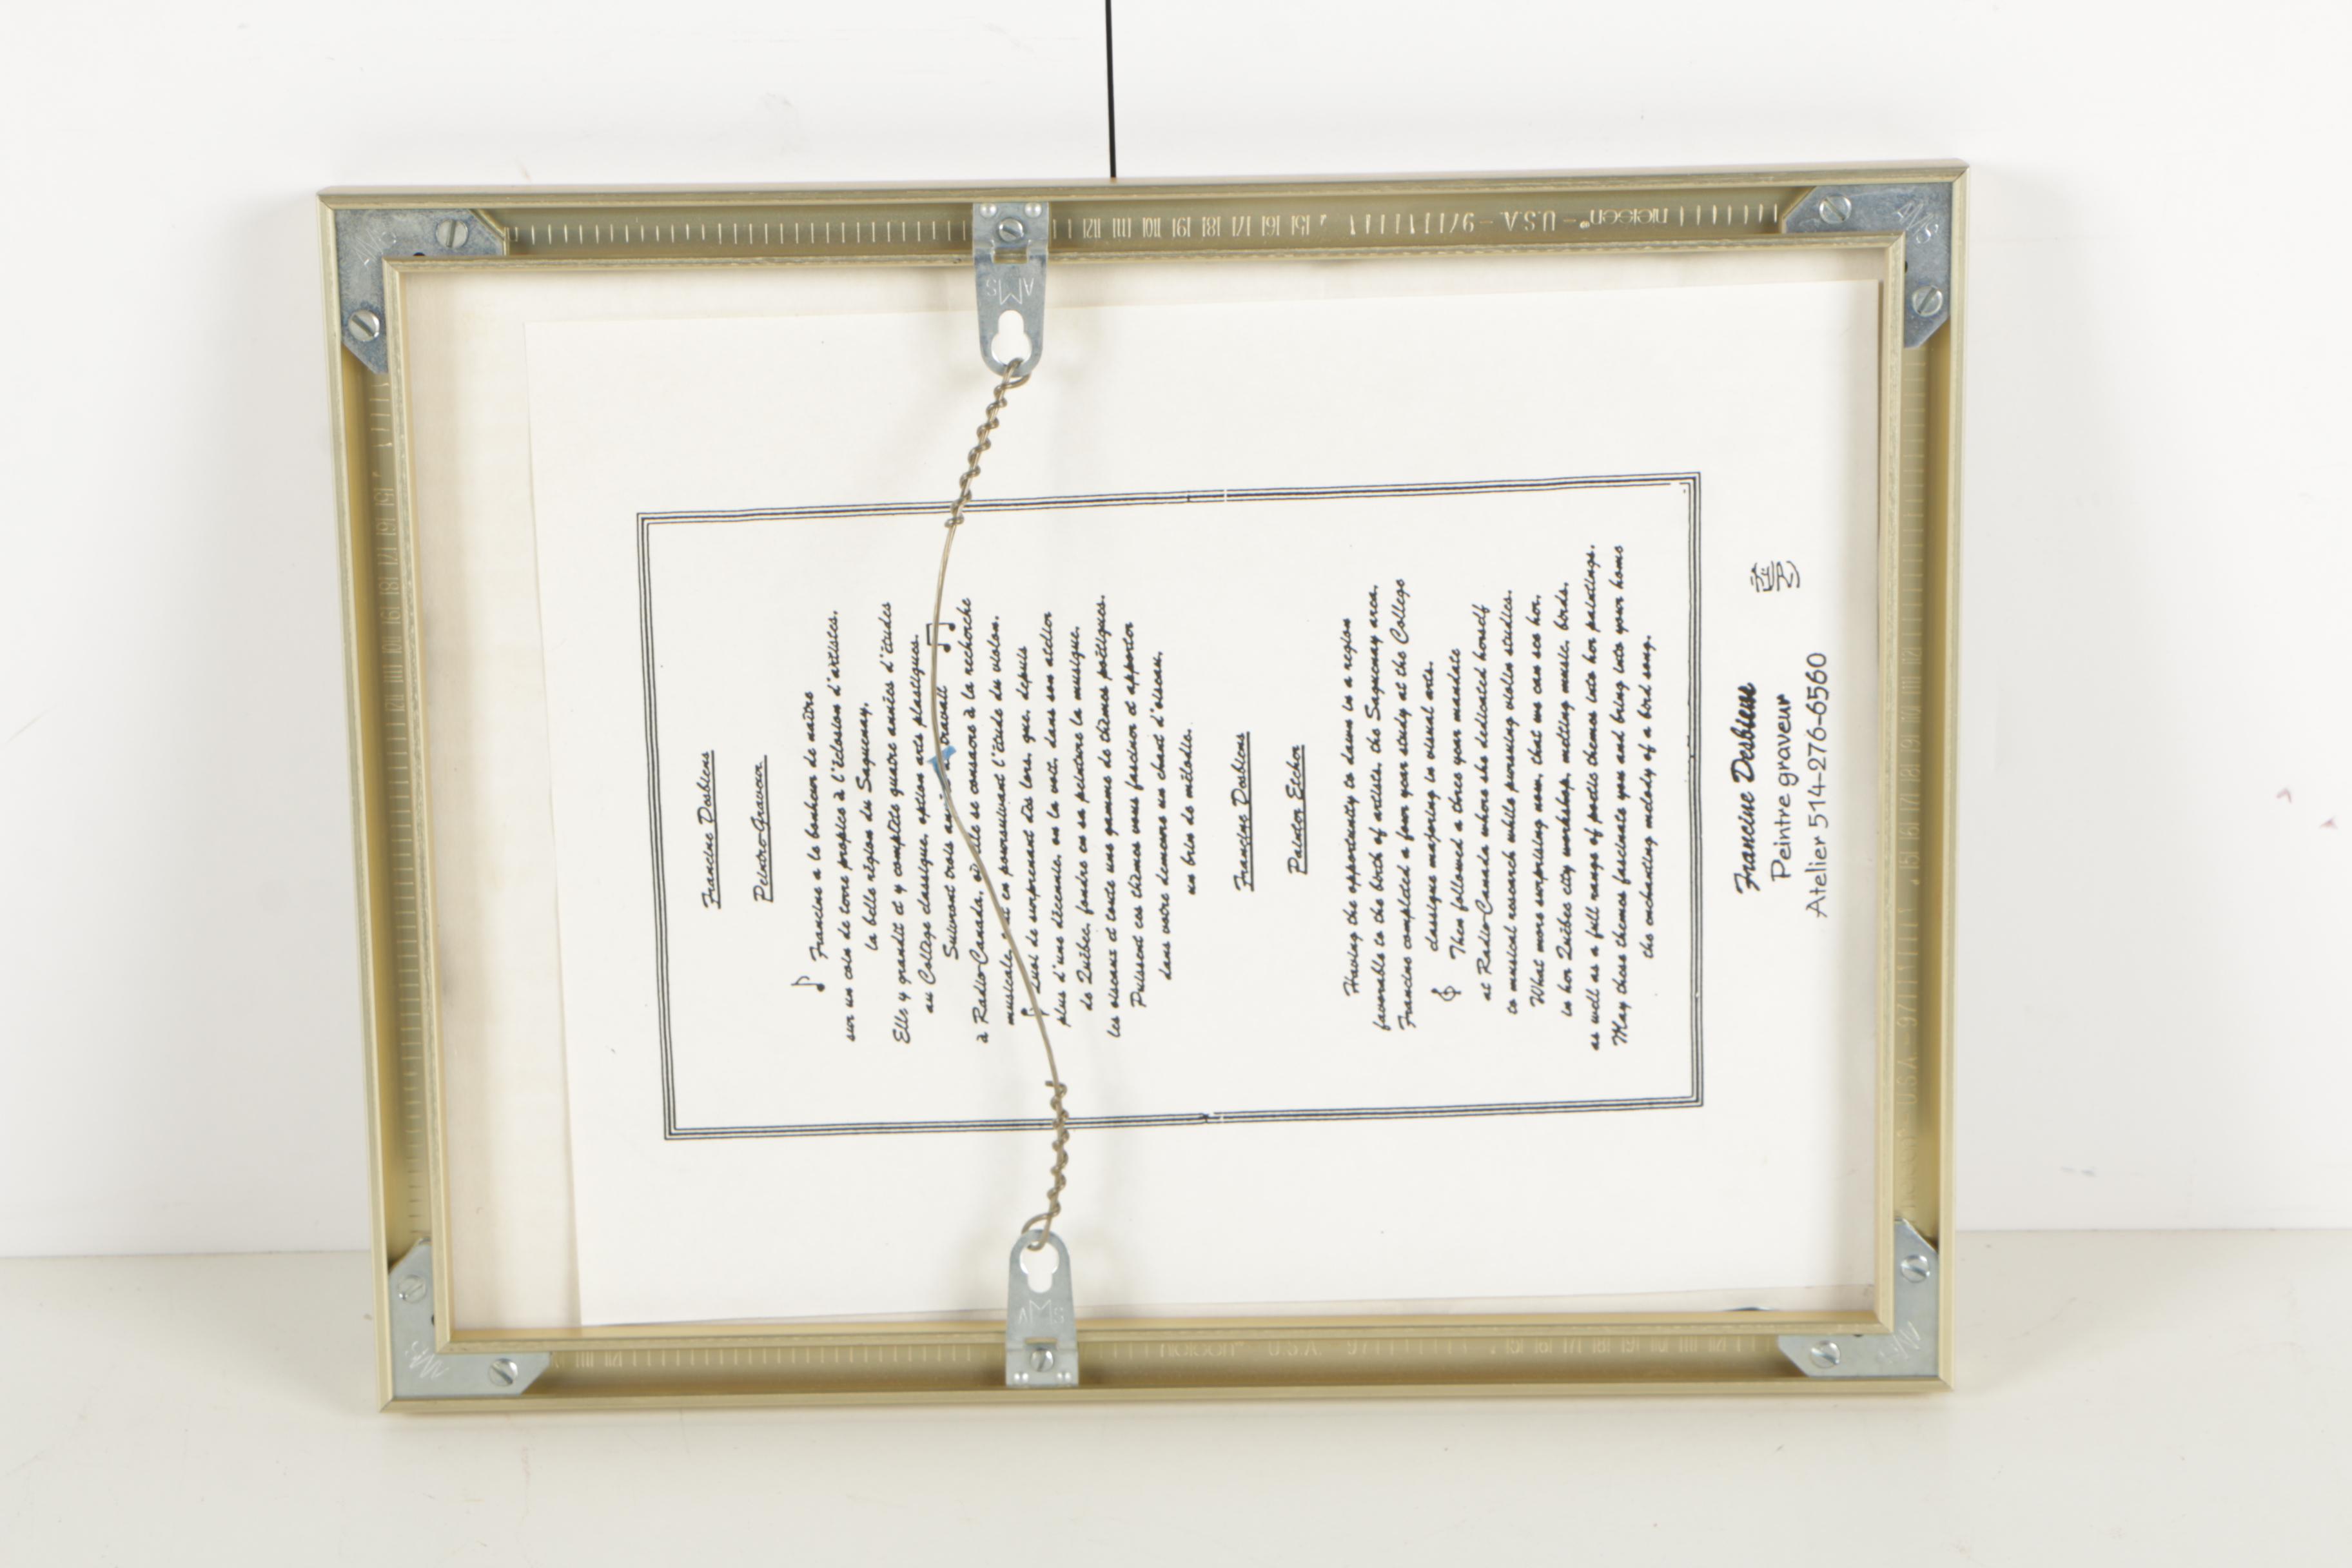 Francine Desbiens
Peintre-Graveur
Francine a le bonheur de naître
sur un coin de terre propice à l'éclosion d'artistes,
la belle région du Saguenay.
Elle y grandit et y complète quatre années d'études
au Collège classique, option arts plastiques.
Suivront trois travail
à Radio-Canada, où elle se consacre à la recherche
musicale, en poursuivant l'étude du violon.
Quoi de surprenant dès lors, que, depuis
plus d'une décennie, on la voit, dans son atelier
de Québec, fondre en sa peinture la musique,
les oiseaux et toute une gamme de thèmes poétiques.
Puissent ces thèmes vous fasciner et apporter
dans votre demeure un chant d'oiseau,
un brin de mélodie.
Francine Desbiens
Painter Etcher
Having the opportunity to dawn in a region
favorable to the birth of artists, the Saguenay area,
Francine completed a four year study at the College
classique majoring in visual arts.
Then followed a three year mandate
at Radio-Canada where she dedicated herself
to musical research while pursuing violin studies.
What more surprising now, that we can see her,
in her Québec city workshop, melting music, birds,
as well as a full range of poetic themes into her paintings.
May these themes fascinate you and bring into your home
the enchanting melody of a bird song.
Francine Desbiens
Peintre graveur
Atelier 514-276-6560
AMS
AMS
AMS
AMS
nielsen - U.S.A. - 97